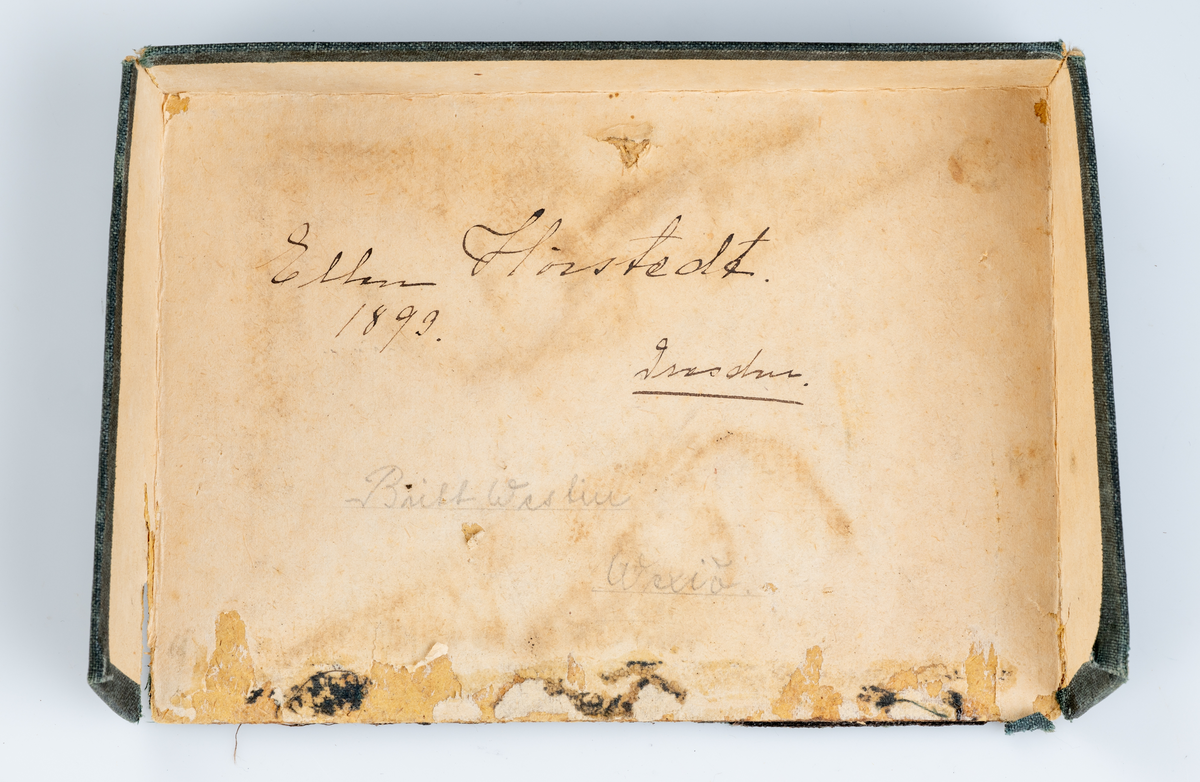 Ellen Hörstedt.
1893.
Dresden.
Britt Westin
Wexiö.